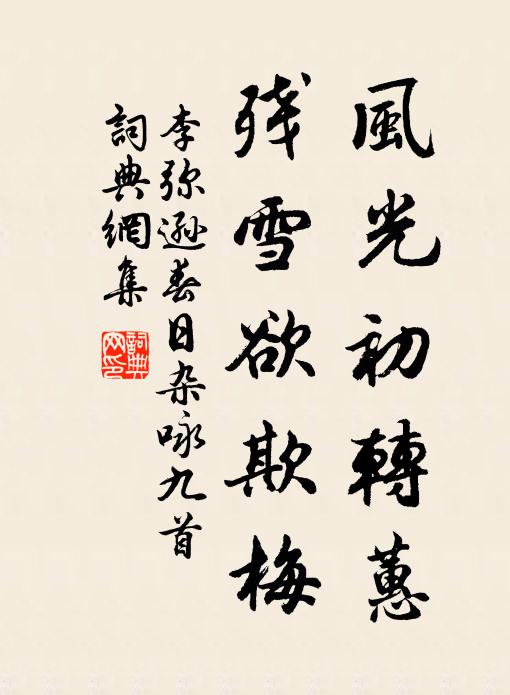 風光初轉蕙
残雪欲欺梅
李弥遜春日杂咏九首
詞典網集
詞典网印